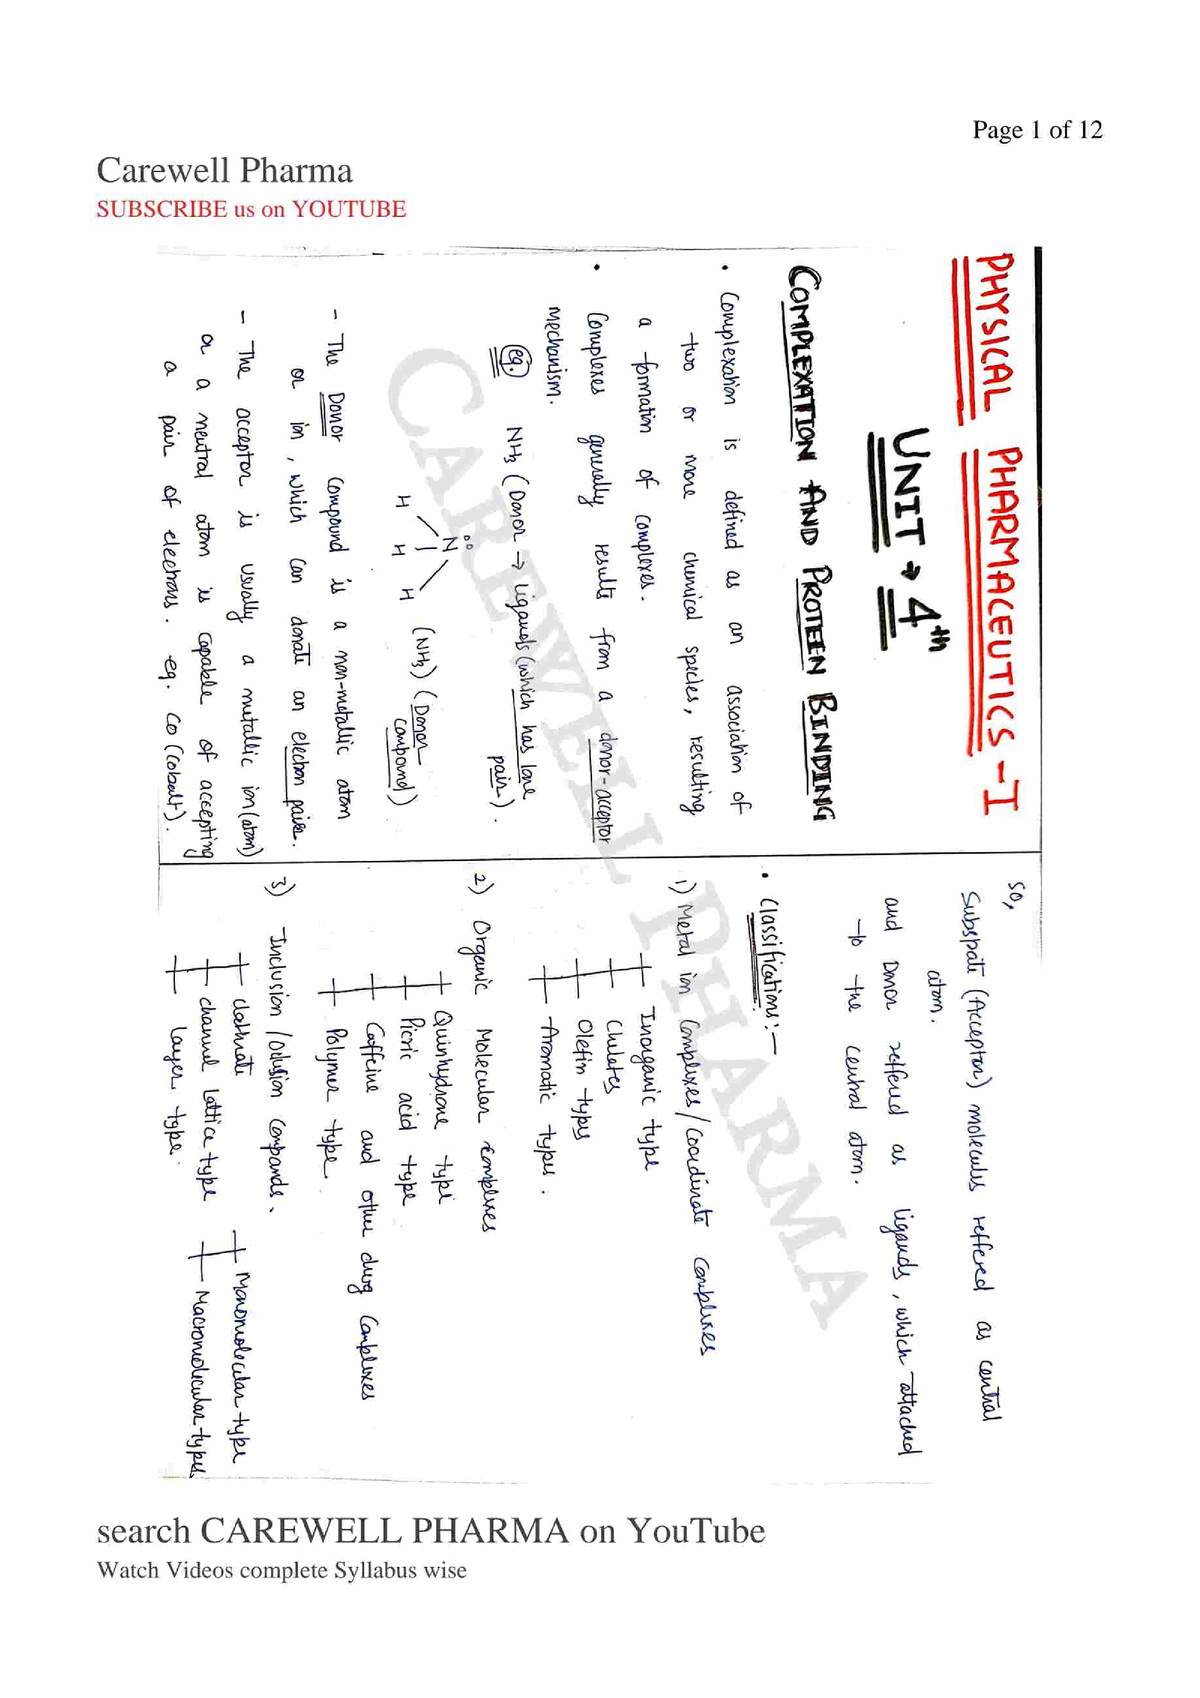 Page 1 of 12
Carewell Pharma
SUBSCRIBE us on YOUTUBE
PHYSICAL PHARMACEUTICS-I
UNIT → 4th
COMPLEXATION AND PROTEIN BINDING
• Complexation is defined as an association of
two or more chemical species, resulting
a formation of complexes.
• Complexes generally results from a donor-acceptor
mechanism.
eg. NH3 (Donor → ligands (which has lone
pair).
N
H H H (NH3) (Donor
compound)
- The Donor compound is a non-metallic atom
or ion, which can donate an electron pair.
- The acceptor is usually a metallic ion (atom)
or a neutral atom is capable of accepting
a pair of electrons. eg. Co (Cobalt).
So,
Substate (Acceptor) molecules reffered as central
atom.
and Donor reffered as ligands, which attached
to the central atom.
• Classifications:-
1) Metal ion Complexes/Coordinate Complexes
Inorganic type
Chelates
Olefin types
Aromatic types.
2) Organic Molecular Complexes
Quinhydrone type
Picric acid type
Caffeine and other drug Complexes
Polymer type.
3) Inclusion/Oclusion Compounds.
clathrate
channel lattice type
layer type.
Monomolecular type
Macromolecular types.
CAREWELL PHARMA
search CAREWELL PHARMA on YouTube
Watch Videos complete Syllabus wise